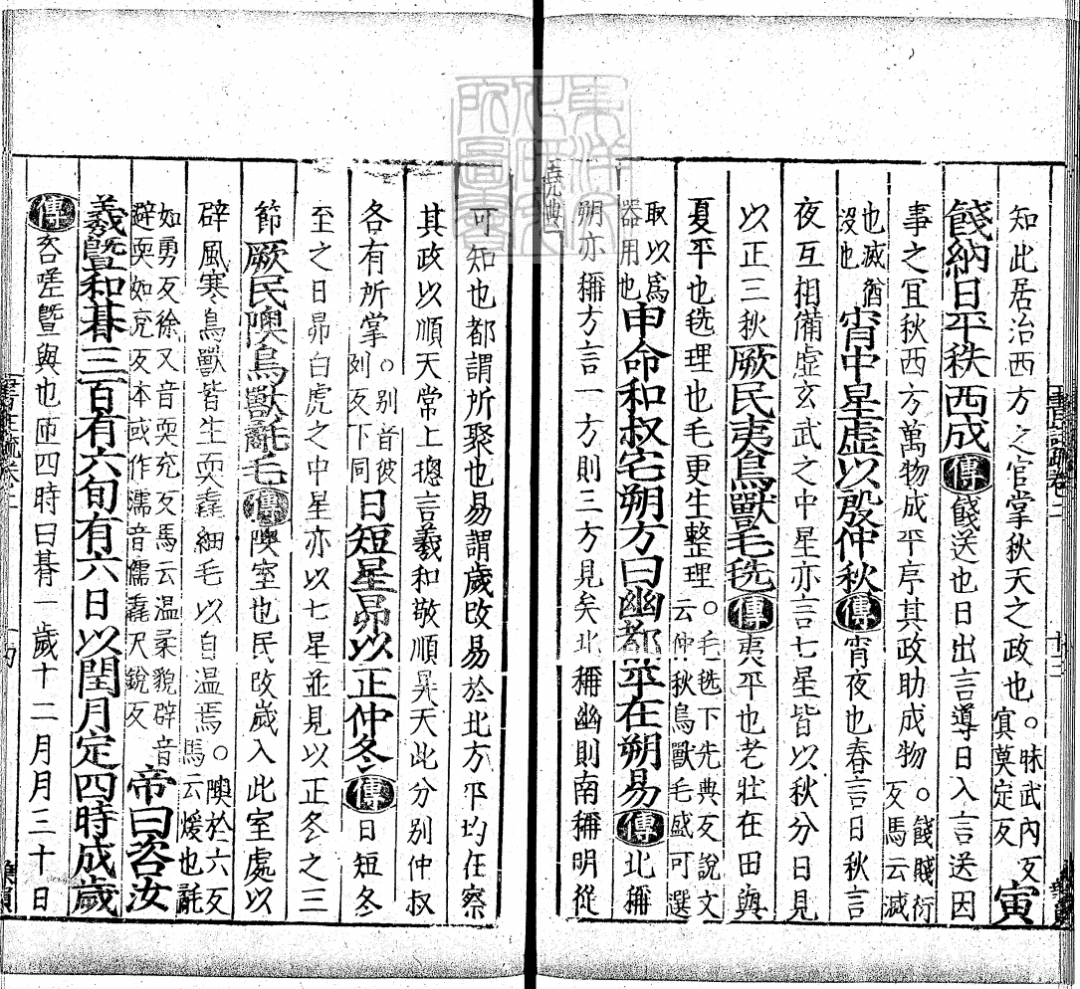 知此居治西方之官掌秋天之政也○昧武内反冥莫定反寅
餞納日平秩西成傳餞送也日出言導日入言送因
事之宜秋西方萬物成平序其政助成物○餞賤衍反馬云滅
也滅猶没也宵中星虚以殷仲秋傳宵夜也春言日秋言
夜互相備虚玄武之中星亦言七星皆以秋分日見
以正三秋厥民夷鳥獸毛毨傳夷平也老壯在田與
夏平也毨理也毛更生整理○毛毨下先典反說文云仲秋鳥獸毛盛可選
取以為器用也申命和叔宅朔方曰幽都平在朔易傳北稱
朔亦稱方言一方則三方見矣北稱幽則南稱明從
堯典
可知也都謂所聚也易謂歲改易於北方平均在察
其政以順天常上摠言羲和敬順昊天此分別仲叔
各有所掌○別音彼列反下同日短星昴以正仲冬傳日短冬
至之日昴白虎之中星亦以七星並見以正冬之三
節厥民隩鳥獸氄毛傳隩室也民改歲入此室處以
辟風寒鳥獸皆生耎毳細毛以自温焉○隩於六反馬云煖也氄
如勇反徐又音耎充反馬云温柔貌辟音避耎如兖反本或作濡音儒毳尺銳反帝曰咨汝
羲曁和朞三百有六旬有六日以閏月定四時成歲
傳咨嗟曁與也匝四時曰朞一歲十二月月三十日